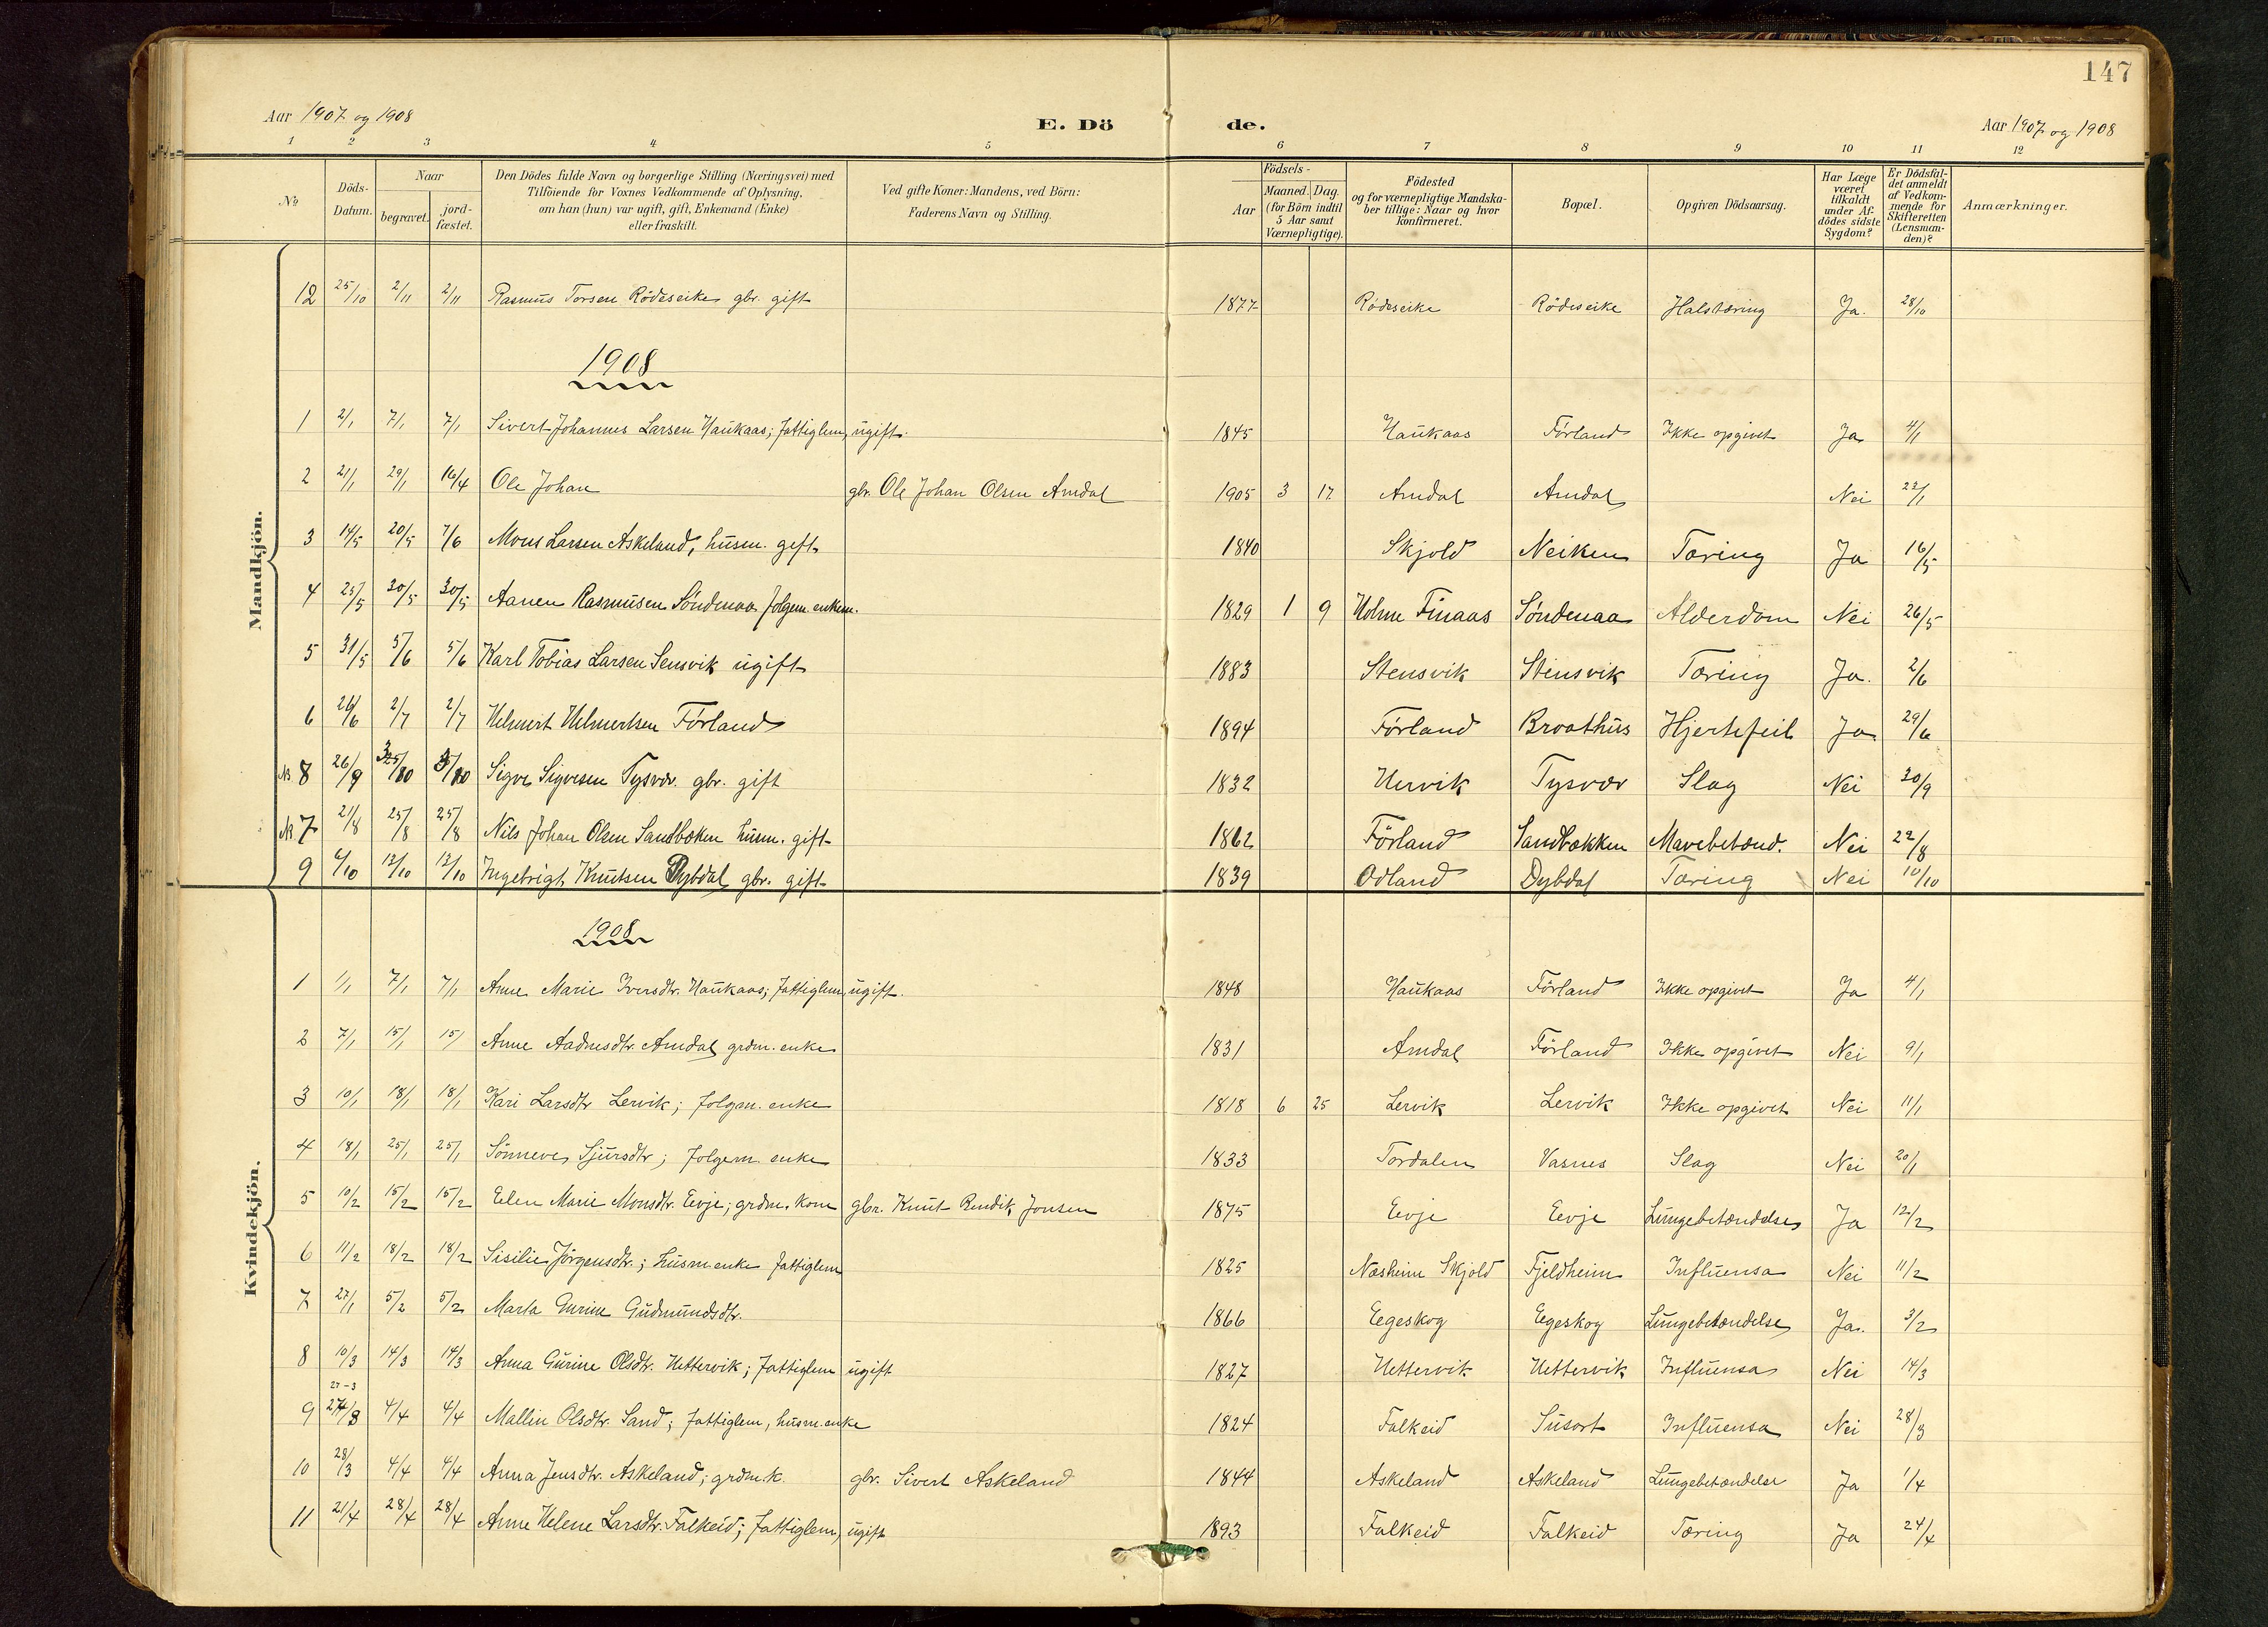 147
Aar 1907 og 1908 E. Dö de. Aar 1907 og 1908
1 2 3 4 5 6 7 8 9 10 11 12
No Döds-Datum. Naar begravet. jord-fæstet. Den Dödes fulde Navn og borgerlige Stilling (Næringsvei) med Tilföiende for Voxnes Vedkommende af Oplysning, om han (hun) var ugift, gift, Enkemand (Enke) eller fraskilt. Ved gifte Koner: Mandens, ved Börn: Faderens Navn og Stilling. Födsels- Aar Maaned. Dag. (for Börn indtil 5 Aar samt Værnepligtige). Födested og for værnepligtige Mandska-ber tillige: Naar og hvor konfirmeret. Bopæl. Opgiven Dödsaarsag. Har Læge været tilkaldt under Af-dödes sidste Sygdom? Er Dödsfal-det anmeldt af Vedkom-mende for Skifteretten (Lensman-den)? Anmærkninger.
Mandkjön.
12 25/10 2/11 2/11 Rasmus Torsen Rödeseike gbr. gift 1877 Rödeseike Rödeseike Halstæring Ja. 28/10
1908
1 2/1 7/1 7/1 Sivert Johannes Larsen Haukaas; fattiglem, ugift. 1845 Haukaas Förland Ikke opgivet Ja 4/1
2 21/1 29/1 16/4 Ole Johan gbr. Ole Johan Olsen Amdal 1905 3 17 Amdal Amdal Nei 22/1
3 14/5 20/5 7/6 Mons Larsen Askeland, husm. gift 1840 Skjold Neiken Tæring Ja 16/5
4 25/5 30/5 30/5 Aanen Rasmusen Söndenaa folgem. enkem. 1829 1 9 Holme Finaas Söndenaa Alderdom Nei 26/5
5 31/5 5/6 5/6 Karl Tobias Larsen Sensvik ugift 1883 Stensvik Stensvik Tæring Ja. 2/6
6 26/6 2/7 2/7 Helmert Helmertsen Förland 1894 Förland Broathus Hjertefeil Ja 29/6
N. 8 26/9 3/10 3/10 Sigve Sigvesen Tysvær. gbr. gift 1832 Hervik Tysvær Slag Nei 30/9
N. 7 21/8 25/8 25/8 Nils Johan Olsen Sandbæken husm. gift 1862 Förland Sandbækken Mavebetænd. Nei 22/8
9 6/10 12/10 12/10 Ingebrigt Knutsen Dybdal gbr. gift 1839 Odland Dybdal Tæring Nei 10/10
Kvindekjön.
1908
1 1/1 7/1 7/1 Anne Marie Iversdtr. Haukaas; fattiglem, ugift. 1848 Haukaas Förland Ikke opgivet Ja 4/1
2 7/1 15/1 15/ Anne Aadnesdtr. Amdal grdm. enke 1831 Amdal Förland Ikke opgivet Nei 9/1
3 10/1 18/1 18/1 Kari Larsdtr Lervik; folgm. enke 1818 6 25 Lervik Lervik Ikke opgivet Nei 11/1
4 18/1 25/1 25/1 Sönneve Sjursdtr; folgem. enke 1833 Tordalen Vasnes Slag Nei 20/1
5 10/2 15/2 15/2 Elen Marie Monsdtr. Eevje; grdm. kone gbr. Knut Bendik Jonsen 1875 Eevje Eevje Lungebetændelse Ja 12/2
6 11/2 18/2 18/2 Sisilie Jörgensdtr.; husm enke fattiglem 1825 Næsheim Skjold Fjeldheim Influensa Nei 11/2
7 27/1 5/2 5/2 Marta Gurine Gudmundsdtr. 1866 Eegeskog Egeskog Lungebetændelse Ja. 3/2
8 10/3 14/3 14/3 Anna Gurine Olsdtr. Hettervik; fattiglem ugift 1827 Hettervik Hettervik Influensa Nei 14/3
27-3
9 27/3 4/4 4/4 Mallin Olsdtr. Sand; fattiglem, husm. enke 1824 Falkeid Susort Influensa Nei 28/3
10 28/3 4/4 4/4 Anna Jensdtr. Askeland; grdm. k. gbr. Sivert Askeland 1844 Askeland Askeland Lungebetændelse Ja 1/4
11 21/4 28/4 28/4 Anne Helene Larsdtr. Falkeid; fattiglem, ugift 1893 Falkeid Falkeid Tæring Ja 24/4